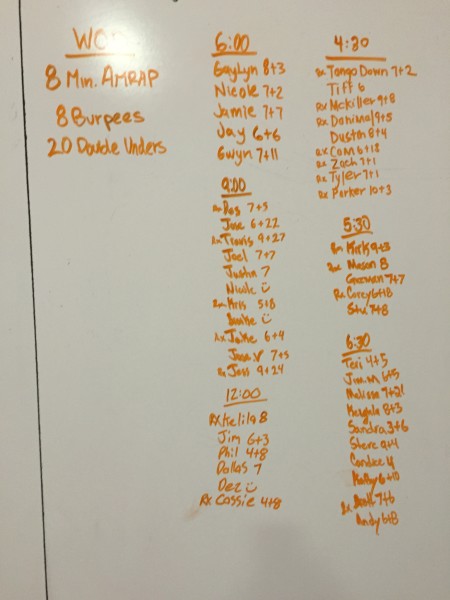 WOD
8 Min. AMRAP
8 Burpees
20 Double Unders
6:00
Gaylyn 8+3
Nicole 7+2
Jamie 7+7
Jay 6+6
Gwyn 7+11
9:00
Rx Des 7+5
Jose 6+22
Rx Travis 9+27
Joel 7+7
Justin 7
Nicole ☺
Rx Kris 5+8
☺
Rx Jake 6+4
Jose V 7+5
Rx Jess 9+24
12:00
Rx Kelila 8
Jim 6+3
Phil 4+8
Dallas 7
Dez ☺
Rx Cassie 4+8
4:30
Rx Tango Down 7+2
Tiff 6
Rx McKiller 9+8
Rx Danimal 9+5
Dustin 8+4
Rx Cam 6+18
Rx Zach 7+1
Rx Tyler 7+1
Rx Parker 10+3
5:30
Rx Kirk 9+3
Rx Mason 8
7+7
Rx Corey 6+18
Stu 7+8
6:30
Teri 4+5
Jim M 6+5
Melissa 7+21
8+3
Sandra 3+6
Steve 9+4
Candice 4
Kathy 6+10
Rx 7+6
Andy 6+8